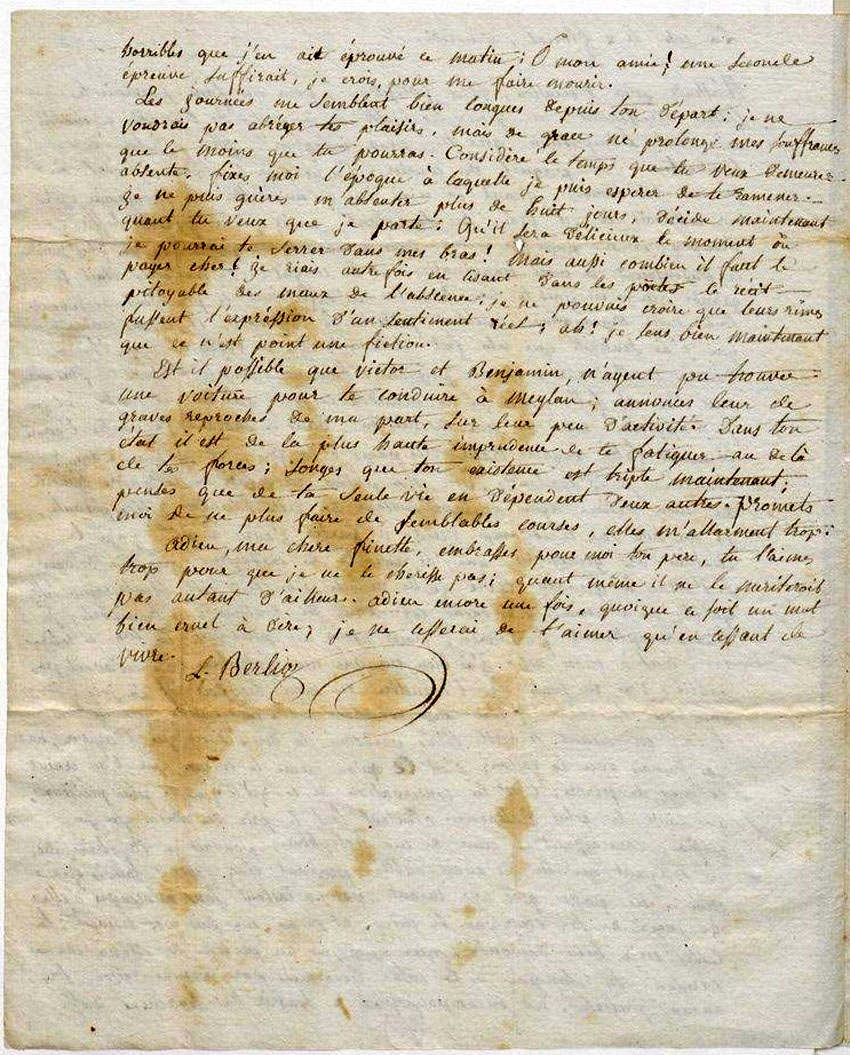 horribles que j'en ait éprouvé ce matin; O mon amie! une seconde
épreuve suffirait, je crois, pour me faire mourir.
Les journées me semblent bien longues depuis ton départ; je ne
voudrais pas abréger tes plaisirs, mais de grace ne prolonge mes souffrances
que le moins que tu pourras. Considère le temps que tu veux demeurer
absente. fixes moi l'époque à laquelle je puis esperer de te ramener.
je ne puis guères m'absenter plus de huit jours, décide maintenant
quant tu veux que je parte; Qu'il sera délicieux le moment où
je pourrai te serrer dans mes bras! Mais aussi combien il faut le
payer cher! je riais autrefois en lisant dans les poètes le récit
pitoyable des maux de l'abscence; je ne pouvais croire que leurs rimes
fussent l'expression d'un sentiment réel; ah! je sens bien maintenant
que ce n'est point une fiction.
Est il possible que victor et Benjamin, n'ayent pu trouver
une voiture pour te conduire à Meylan; annonces leur de
graves reproches de ma part, sur leur peu d'activité. Dans ton
état il est de la plus haute imprudence de te fatiguer au delà
de tes forces; songes que ton existence est triple maintenant;
penses que de ta seule vie en dépendent deux autres. promets
moi de ne plus faire de semblables courses, elles m'allarment trop.
Adieu, ma chere finette, embrasses pour moi ton pere, tu l'aimes
trop pour que je ne le cherisse pas; quant même il ne le meriteroit
pas autant d'ailleurs. adieu encore une fois, quoique ce soit un mot
bien cruel à dire; je ne cesserai de t'aimer qu'en cessant de
vivre.
L. Berlioz